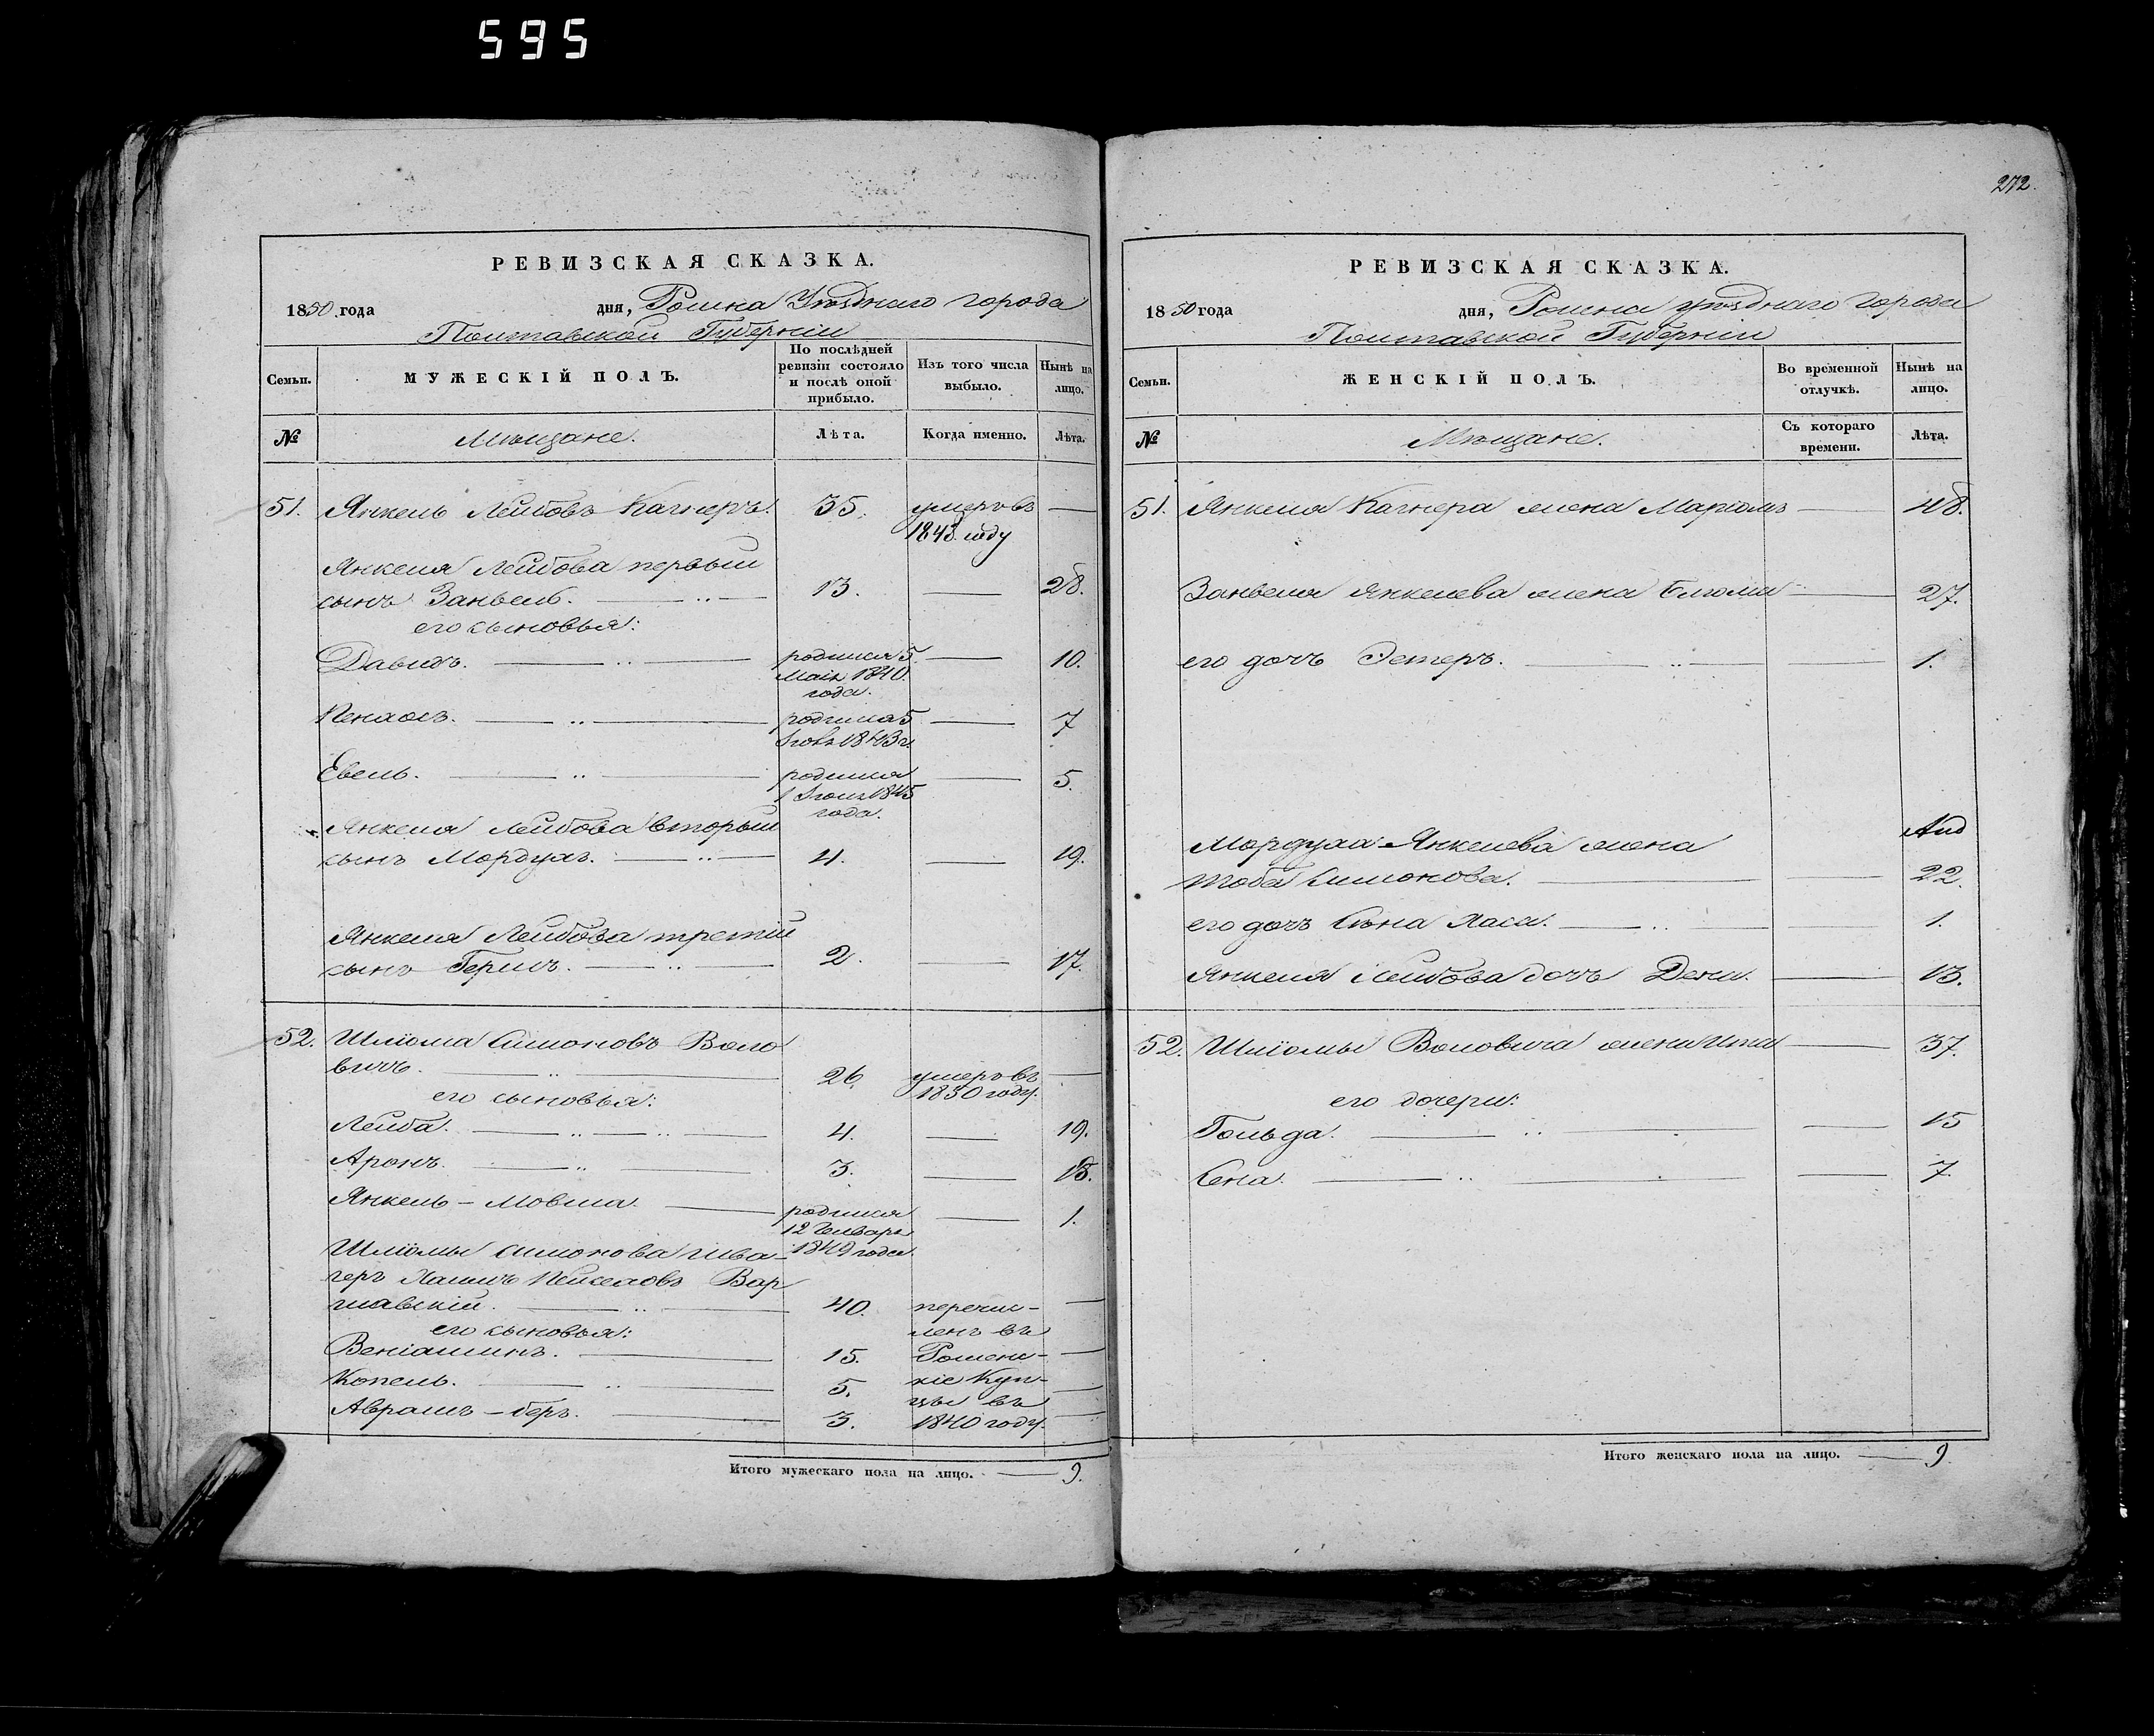 595
272.
РЕВИЗСКАЯ СКАЗКА.
1850 года дня, Ромна Уѣзднаго города
Полтавской Губерніи
Семьи.
МУЖЕСКІЙ ПОЛЪ.
По послѣдней
ревизіи состояло
и послѣ оной
прибыло.
Изъ того числа
выбыло.
Нынѣ на
лицо.
№
Мѣщане.
Лѣта.
Когда именно.
Лѣта.
51. Янкель Лейбовъ Кагнеръ. 35. умеръ въ —
1843 году
Янкеля Лейбова первый
сынъ Занвель. — 13. — 28.
его сыновья:
Давидъ. — родился 5 — 10.
Маія 1840.
года.
Пенхосъ. — родился 5 — 7
1843 г.
Евель. — родился — 5.
1 1845
года.
Янкеля Лейбова вторый
сынъ Мордухъ. — 4. — 19.
Янкеля Лейбова третій
сынъ Гершъ. — 2. — 17.
52. Шліома Симоновъ Воло
вичъ. — 26. умеръ въ —
1850 году.
его сыновья:
Лейба. — 4. — 19.
Аронъ. — 3. — 18.
Янкель-Мовша. — родился — 1.
12 Генваря
1849 года.
Шліомы Симонова шва-
геръ Хаимъ Пейсаховъ Вар
шавскій. — 40. перечис- —
его сыновья: ленъ въ
Веніаминъ. — 15. Ромен- —
Копель. — 5. кіе Куп- —
цы въ
Аврамъ-беръ. — 3. 1840 году. —
Итого мужескаго пола на лицо. — 9.
РЕВИЗСКАЯ СКАЗКА.
1850 года дня, Ромна уѣзднаго города
Полтавской Губерніи
Семьи.
ЖЕНСКІЙ ПОЛЪ.
Во временной
отлучкѣ.
Нынѣ на
лицо.
№
Мѣщане.
Съ котораго
времени.
Лѣта.
51. Янкеля Кагнера жена Маріомъ — 48.
Занвеля Янкелева жена — 27.
его дочь Эстеръ. — — 1.
Мордуха Янкелева жена
Тоба Симонова. — — 22.
его дочь Сѣна Хаса. — — 1.
Янкеля Лейбова дочь — 13.
52. Шліомы Воловича жена Ита — 37.
его дочери:
Гольда. — — 15
Сена. — — 7.
Итого женскаго пола на лицо. — 9.